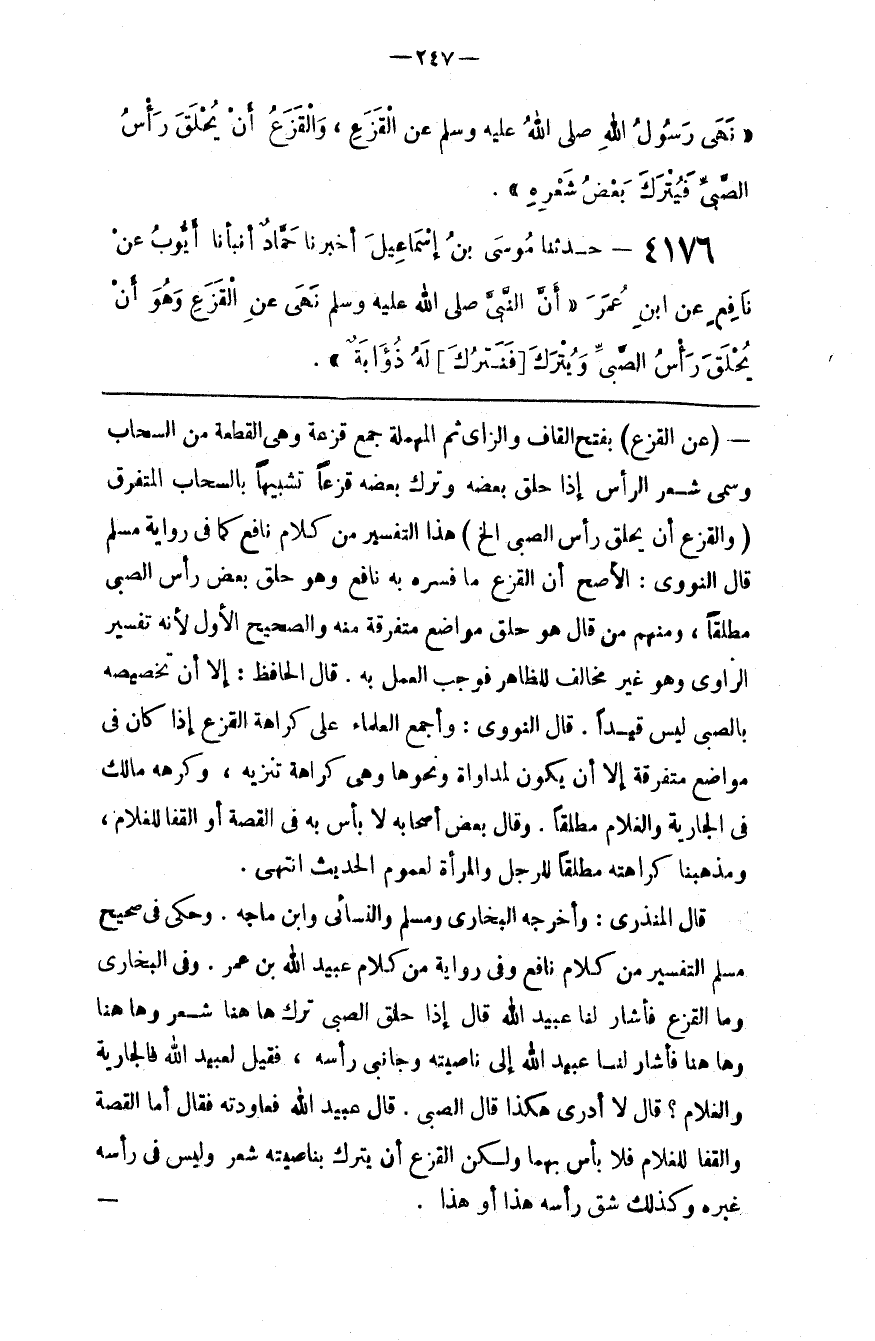 —٢٤٧—
« نَهَى رَسُولُ اللهِ صلى اللهُ عليه وسلم عن الْقَزَعِ ، وَالْقَزَعُ أَنْ يُحْلَقَ رَأْسُ
الصَّبِيِّ فَيُتْرَكَ بَعْضُ شَعْرِهِ » .
٤١٧٦ — حـدثنا مُوسَى بنُ إِسْمَاعِيلَ أخبرنا حَمَّادٌ أنبأنا أَيُّوبُ عنْ
نَافِعٍ عن ابنِ عُمَرَ « أَنَّ النَّبيَّ صلى الله عليه وسلم نَهَى عنِ الْقَزَعِ وَهُوَ أَنْ
يُحْلَقَ رَأْسُ الصَّبيِّ وَيُتْرَكَ [فَتَـتْرُكَ] لَهُ ذُؤَابَةٌ » .
— (عن القزع) بفتح القاف والزاى ثم المهملة جمع قزعة وهى القطعة من السحاب
وسمى شـعر الرأس إذا حلق بعضه وترك بعضه قزعاً تشبيهاً بالسحاب المتفرق
( والقزع أن يحلق رأس الصبى الخ ) هذا التفسير من كـلام نافع كما فى رواية مسلم
قال النووى : الأصح أن القزع ما فسره به نافع وهو حلق بعض رأس الصبى
مطلقاً ، ومنهم من قال هو حلق مواضع متفرقة منه والصحيح الأول لأنه تفسير
الراوى وهو غير مخالف للظاهر فوجب العمل به . قال الحافظ : إلا أن تخصيصه
بالصبى ليس قيـداً . قال النووى : وأجمع العلماء على كراهة القزع إذا كان فى
مواضع متفرقة إلا أن يكون لمداواة ونحوها وهى كراهة تنزيه ، وكرهه مالك
فى الجارية والغلام مطلقاً . وقال بعض أصحابه لا بأس به فى القصة أو القفا للغلام ،
ومذهبنا كراهته مطلقاً للرجل والمرأة لعموم الحديث انتهى .
قال المنذرى : وأخرجه البخارى ومسلم والنسائى وابن ماجه . وحكى فى صحيح
مسلم التفسير من كـلام نافع وفى رواية من كلام عبيد الله بن عمر . وفى البخارى
وما القزع فأشار لنا عبيد الله قال إذا حلق الصبى ترك ها هنا شـعر وها هنا
وها هنا فأشار لنـا عبيد الله إلى ناصيته وجانبى رأسه ، فقيل لعبيد الله فالجارية
والغلام ؟ قال لا أدرى هكذا قال الصبى . قال عبيد الله فعاودته فقال أما القصة
والقفا للغلام فلا بأس بهما ولـكن القزع أن يترك بناصيته شعر وليس فى رأسه
غيره وكذلك شق رأسه هذا أو هذا . —